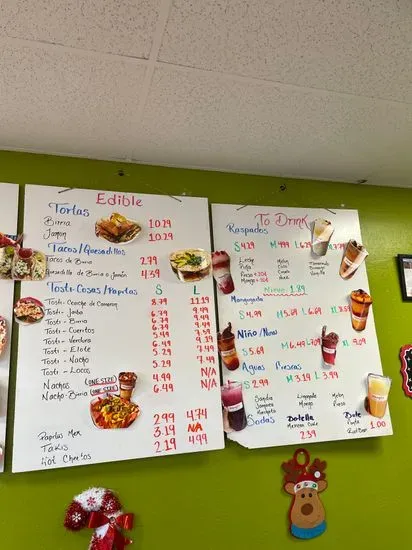 Edible
Tortas
Birria 10.29
Jamón 10.29
Tacos/Quesadillas
Tacos de Birria 2.79
Quesadilla de Birria o Jamón 4.59
Tosti-Cosas/Papitas S L
Tosti - Ceviche de Camaron 8.79 11.19
Tosti - Jaiba 6.79 9.49
Tosti - Birria 6.79 9.49
Tosti - Cueritos 6.79 9.49
Tosti - Verdura 5.49
Tosti - Elote 4.49 7.49
Tosti - Nacho 5.49 7.49
Tosti - Locos N/A
Nachos ONE SIZE 4.99 N/A
Nacho-Birria ONE SIZE 6.49
Papitas Mex 2.99 4.74
Takis 3.19 N/A
Hot Cheetos 2.19 4.99
To Drink
Raspados S 4.29 M 4.99 L 6.29
Leche Melon
Piña Tamarindo
Mango
Nieve 1.89
Mangonada S 4.99 M 5.69 L 6.69 XL
Niño/New
S 5.69 M 6.49 L 7.09 XL 9.09
Aguas Frescas
S 2.99 M 3.19 L 3.99
Sandia Limonada Melon
Jamaica Mango Fresa
Horchata
Sodas Botella Bote
Mexican Coke Fanta
2.39 1.00